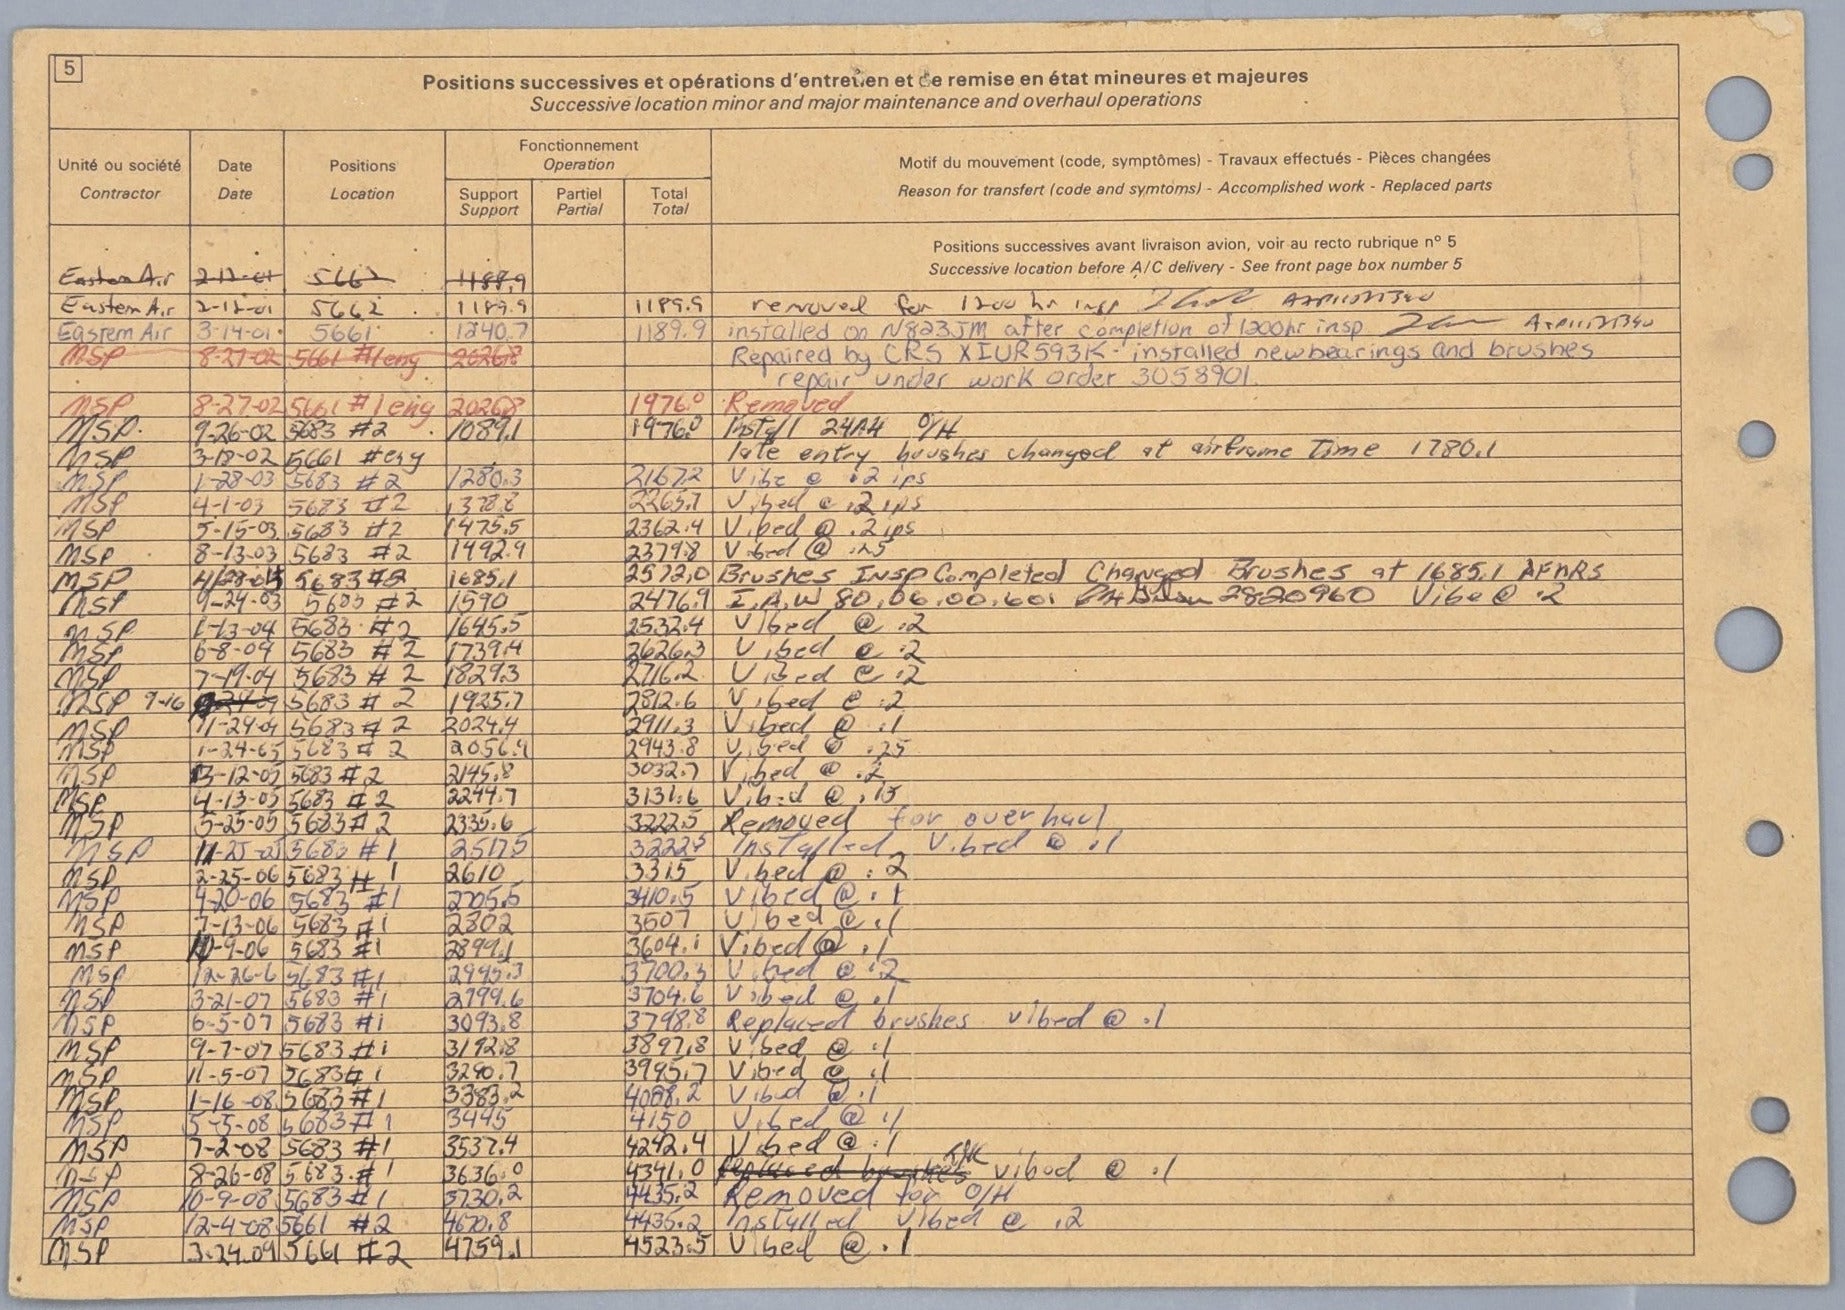 5
Positions successives et opérations d'entretien et de remise en état mineures et majeures
Successive location minor and major maintenance and overhaul operations
Unité ou société Contractor Date Date Positions Location Fonctionnement Operation Motif du mouvement (code, symptômes) - Travaux effectués - Pièces changées
Reason for transfert (code and symtoms) - Accomplished work - Replaced parts
Support Support Partiel Partial Total Total
Positions successives avant livraison avion, voir au recto rubrique n° 5
Successive location before A/C delivery - See front page box number 5
Eastern Air 2-12-01 5662 1188.9
Eastern Air 2-12-01 5662 1189.9 1189.9 removed for 1200 hr insp
Eastern Air 3-14-01 5661 1240.7 1189.9 installed on N823JM after completion of 1200hr insp
MSP 8-27-02 5661 #1eng 2026.8 Repaired by CRS XIUR593K - installed new bearings and brushes
repair under work order 3058901.
MSP 8-27-02 5661 #1eng 2026.8 1976.0 Removed
MSP. 9-26-02 5683 #2 1089.1 1976.0 Install 24AH O/H
MSP 3-18-02 5661 #eng late entry brushes changed at airframe Time 1780.1
MSP 1-28-03 5683 #2 1280.3 2167.2 Vibe @ .2 ips
MSP 4-1-03 5683 #2 1378.8 2265.7 Vibed @ .2 ips
MSP 5-15-03 5683 #2 1475.5 2362.4 Vibed @ .2 ips
MSP 8-13-03 5683 #2 1492.9 2379.8 Vibed @ .25
MSP 5683 #2 1685.1 2572.0 Brushes Insp Completed Changed Brushes at 1685.1 AFHRS
MSP 9-24-03 5683 #2 1590 2476.9 I.A.W 80.06.00.601 2820960 Vibe @ .2
MSP 1-13-04 5683 #2 1645.5 2532.4 Vibed @ .2
MSP 6-8-04 5683 #2 1739.4 2626.3 Vibed @ .2
MSP 7-19-04 5683 #2 1829.3 2716.2 Vibed @ .2
MSP 9-16 5683 #2 1925.7 2812.6 Vibed @ .2
MSP 11-24-04 5683 #2 2024.4 2911.3 Vibed @ .1
MSP 1-24-05 5683 #2 2056.9 2943.8 Vibed @ .25
MSP 3-12-05 5683 #2 2145.8 3032.7 Vibed @ .2
MSP 4-13-05 5683 #2 2244.7 3131.6 Vibed @ .15
MSP 5-25-05 5683 #2 2335.6 3222.5 Removed for overhaul
MSP 11-25-05 5683 #1 2517.5 3222.5 Installed Vibed @ .1
MSP 2-25-06 5683 # 1 2610 3315 Vibed @ .2
MSP 4-20-06 5683 #1 2705.5 3410.5 Vibed @ .1
MSP 7-13-06 5683 #1 2802 3507 Vibed @ .1
MSP 10-9-06 5683 #1 2899.1 3604.1 Vibed @ .1
MSP 12-26-6 5683 #1 2995.3 3700.3 Vibed @ .2
MSP 3-21-07 5683 #1 2999.6 3704.6 Vibed @ .1
MSP 6-5-07 5683 #1 3093.8 3798.8 Replaced brushes. Vibed @ .1
MSP 9-7-07 5683 #1 3192.8 3897.8 Vibed @ .1
MSP 11-5-07 5683 # 1 3290.7 3995.7 Vibed @ .1
MSP 1-16-08 5683 #1 3383.2 4088.2 Vibed @ .1
MSP 5-5-08 5683 #1 3445 4150 Vibed @ .1
MSP 7-2-08 5683 #1 3537.4 4242.4 Vibed @ .1
MSP 8-26-08 5683 #1 3636.0 4341.0 Replaced brushes vibed @ .1
MSP 10-9-08 5683 #1 3730.2 4435.2 Removed for O/H
MSP 12-4-08 5661 #2 4670.8 4435.2 Installed Vibed @ .2
MSP 3-24-09 5661 #2 4759.1 4523.5 Vibed @ .1